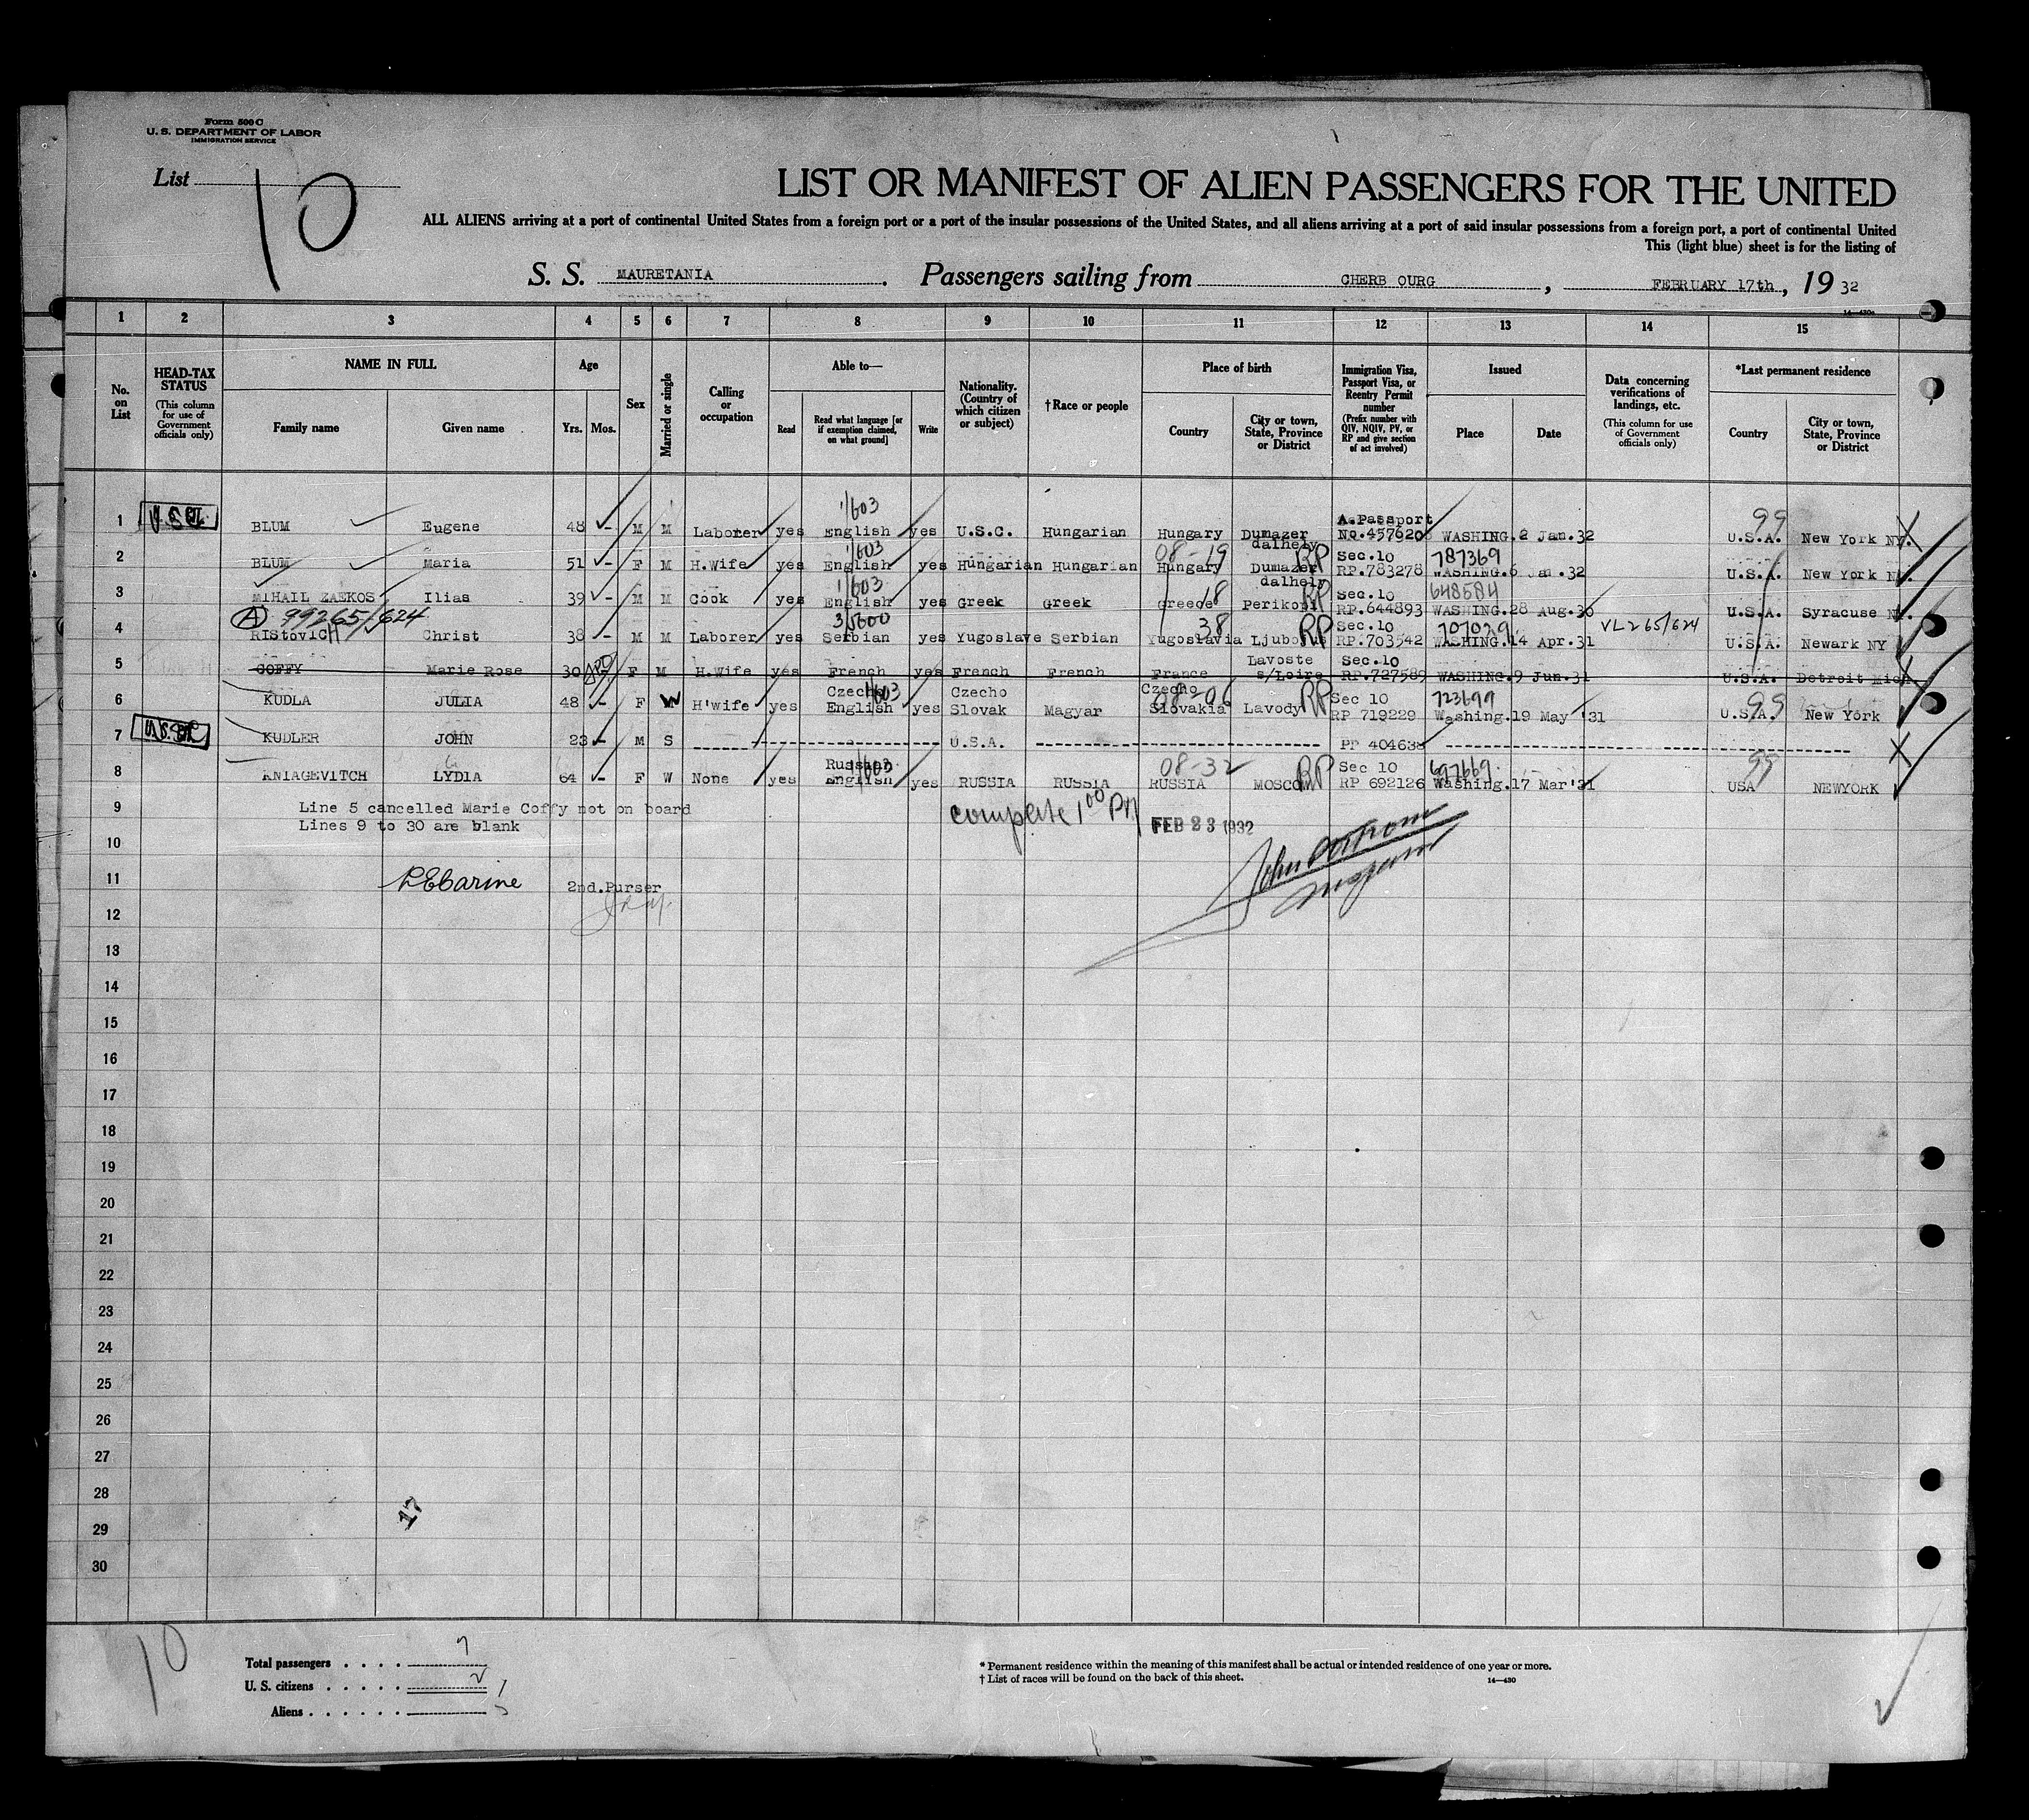 Form 500 C
U. S. DEPARTMENT OF LABOR
IMMIGRATION SERVICE
List 10
LIST OR MANIFEST OF ALIEN PASSENGERS FOR THE UNITED
ALL ALIENS arriving at a port of continental United States from a foreign port or a port of the insular possessions of the United States, and all aliens arriving at a port of said insular possessions from a foreign port, a port of continental United
This (light blue) sheet is for the listing of
S. S. MAURETANIA. Passengers sailing from CHERB OURG, FEBRUARY 17th, 19 32
14—430a
1 2 3 4 5 6 7 8 9 10 11 12 13 14 15
No. on List
HEAD-TAX STATUS (This column for use of Government officials only)
NAME IN FULL
Family name
Given name
Age
Yrs. Mos.
Sex
Married or single
Calling or occupation
Able to—
Read
Read what language [or if exemption claimed, on what ground]
Write
Nationality. (Country of which citizen or subject)
†Race or people
Place of birth
Country
City or town, State, Province or District
Immigration Visa, Passport Visa, or Reentry Permit number (Prefix number with QIV, NQIV, PV, or RP and give section of act involved)
Issued
Place
Date
Data concerning verifications of landings, etc. (This column for use of Government officials only)
*Last permanent residence
Country
City or town, State, Province or District
1/603 99
1 BLUM Eugene 48 - M M Laborer yes English yes U.S.C. Hungarian Hungary Dumazer dalhely A.Passport NO.457620 WASHING. 2 Jan.32 U.S.A. New York NY.
1/603 08-19 RP 787369
2 BLUM Maria 51 - F M H.Wife yes English yes Hungarian Hungarian Hungary Dumazer dalhely Sec.10 RP.783278 WASHING. 6 Jan.32 U.S.A. New York
1/603 18 RP 648584
3 MIHAIL ZAEKOS Ilias 39 - M M Cook yes English yes Greek Greek Greece Perikopi Sec.10 RP.644893 WASHING. 28 Aug.30 U.S.A. Syracuse
A 99265/624 38 RP 707029 VL 265/624
4 RIStoviCH Christ 38 - M M Laborer yes Serbian yes Yugoslave Serbian Yugoslavia Sec.10 RP.703542 WASHING. 14 Apr.31 U.S.A. Newark NY
5 COFFY Marie Rose 30 F M H.Wife yes French yes French French France Lavoste s/Loire Sec.10 RP.727589 WASHING. 9 Jun.31 U.S.A. Detroit Mich
08-06 RP 723699 99
6 KUDLA JULIA 48 - F W H'wife yes Czecho English yes Czecho Slovak Magyar Czecho Slovakia Lavody Sec 10 RP 719229 Washing. 19 May '31 U.S.A. New York
7 KUDLER JOHN 23 - M S U.S.A. PP 404638
08-32 RP 697669 99
8 KNIAGEVITCH LYDIA 64 - F W None yes Russian English yes RUSSIA RUSSIA RUSSIA MOSCOW Sec 10 RP 692126 Washing. 17 Mar'31 USA NEWYORK
9 Line 5 cancelled Marie Coffy not on board
Lines 9 to 30 are blank
complete 1 00 PM FEB 23 1932
10
11 2nd.Purser
12
13
14
15
16
17
18
19
20
21
22
23
24
25
26
27
28
29
30
17
10
Total passengers 7
U. S. citizens 2
Aliens 5
* Permanent residence within the meaning of this manifest shall be actual or intended residence of one year or more.
† List of races will be found on the back of this sheet. 14—430